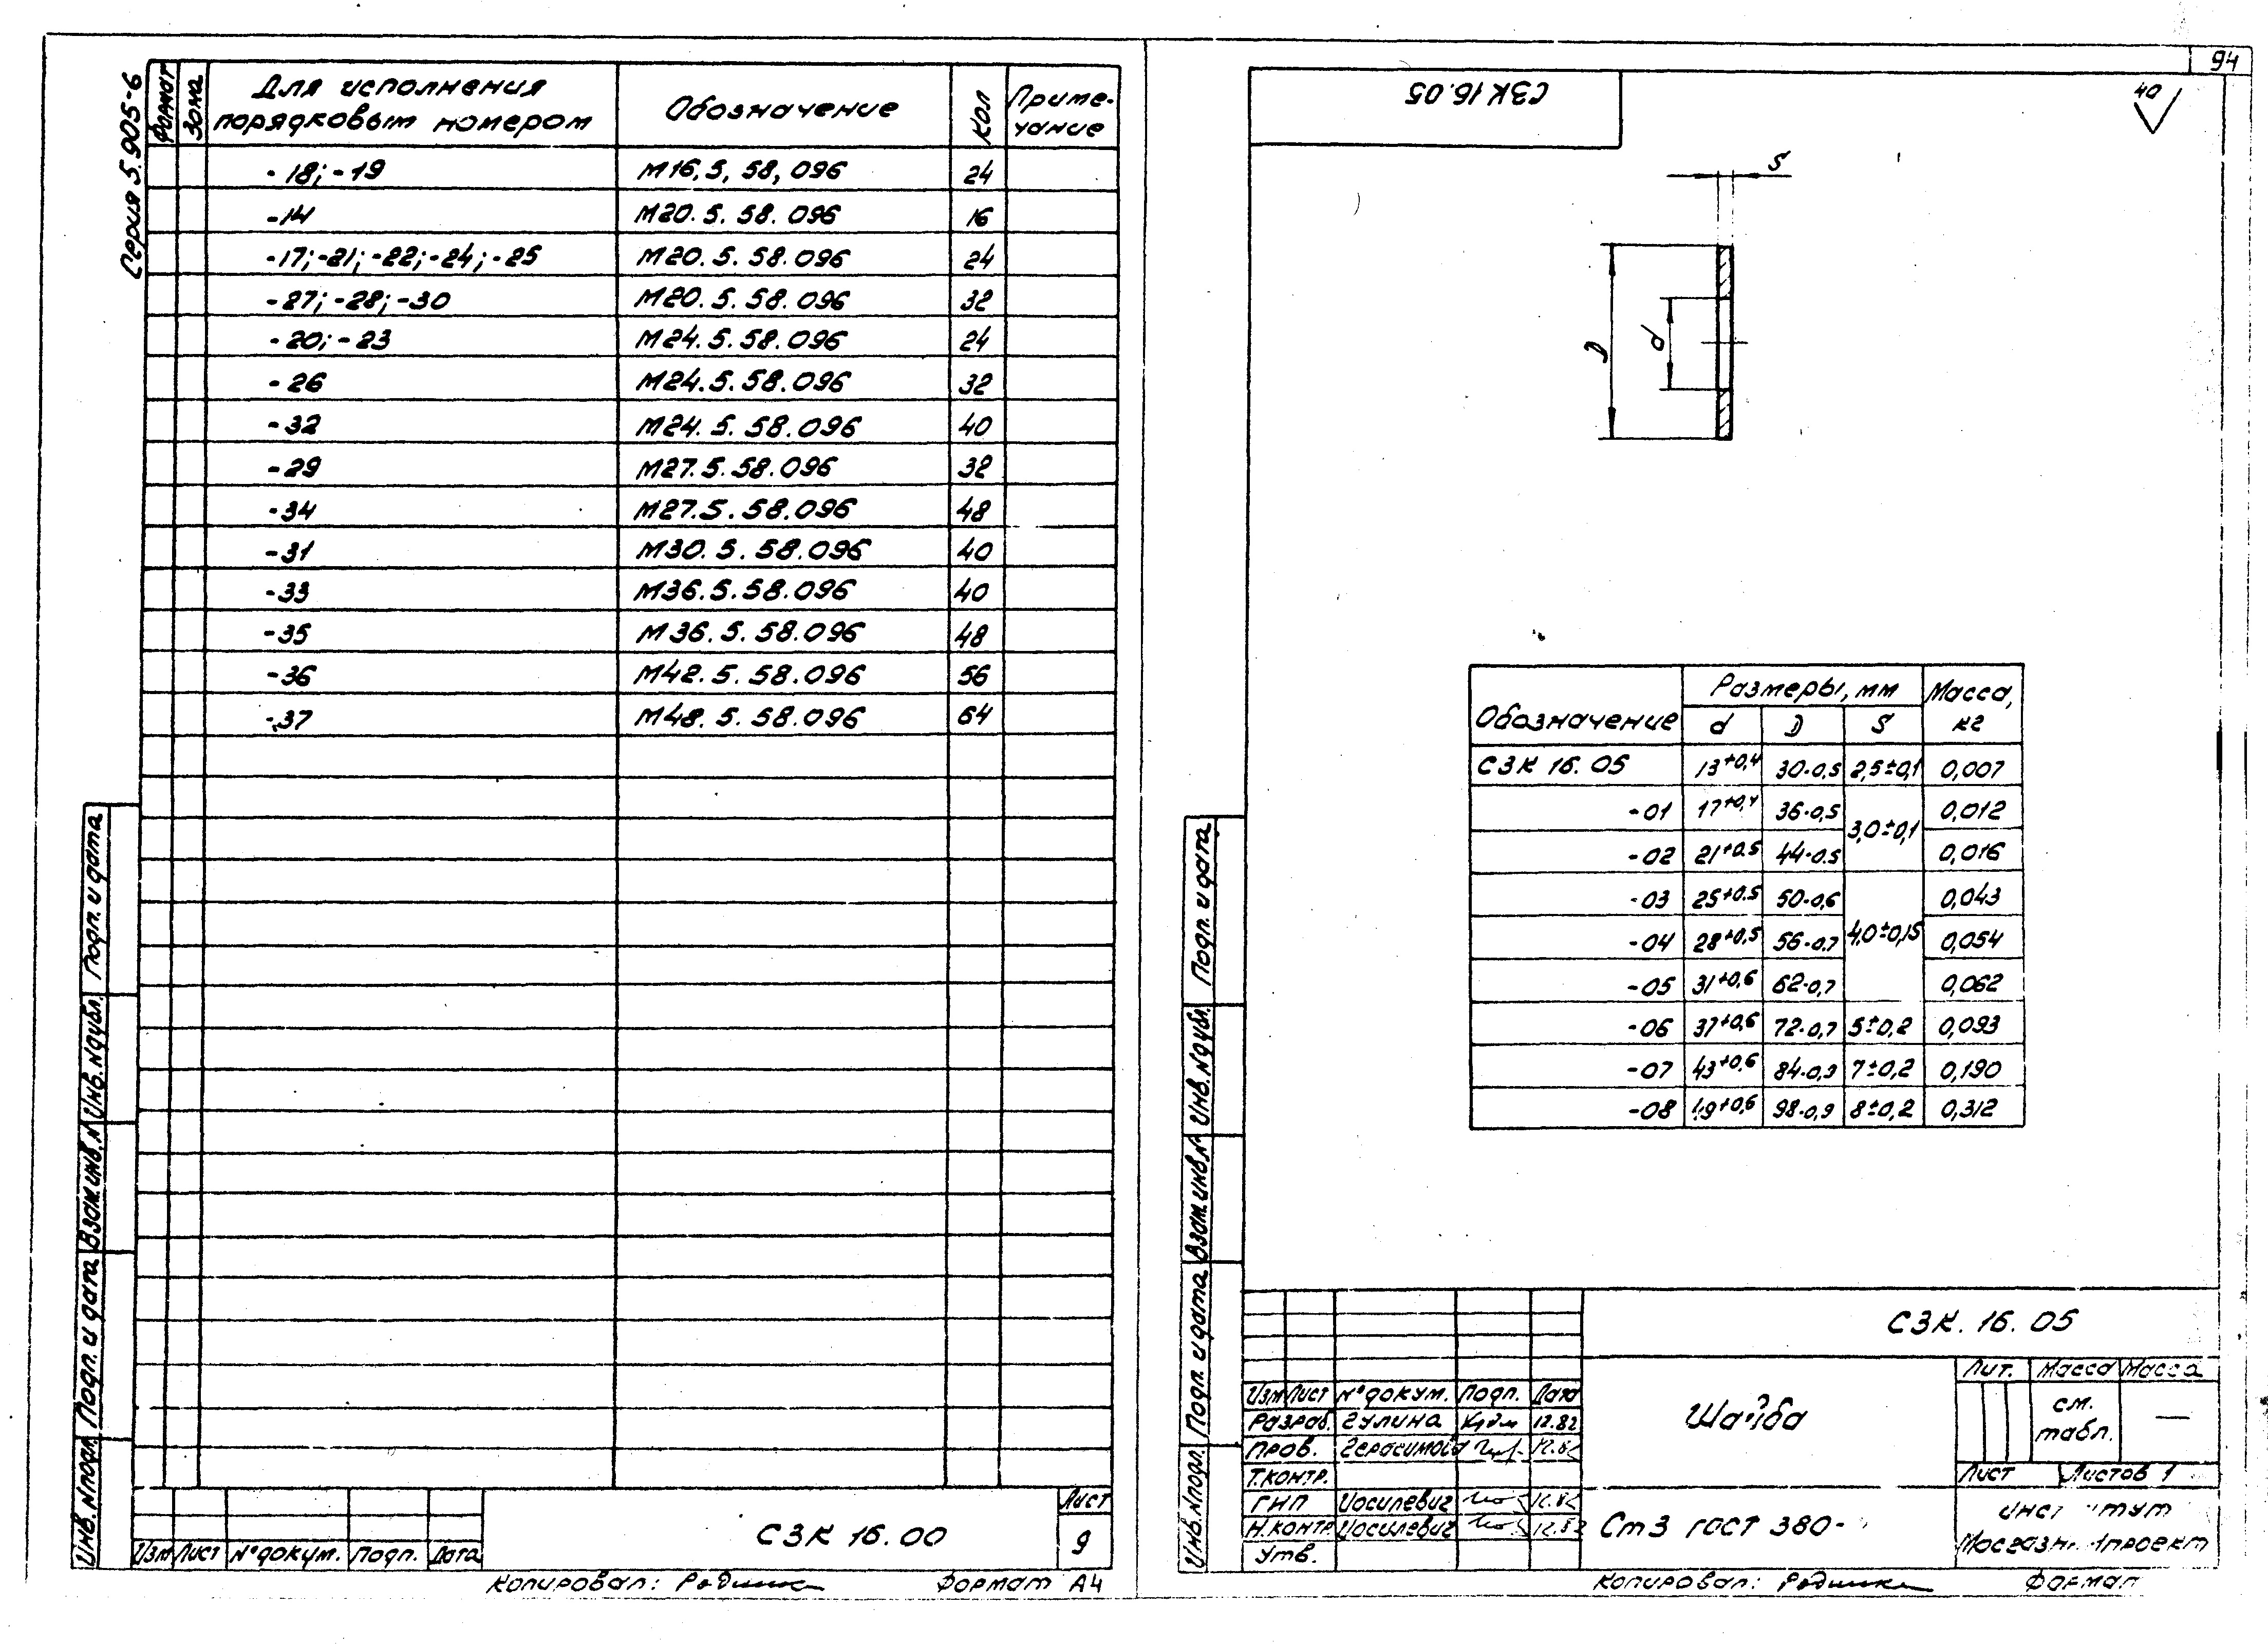 Серия 5.905-6
Формат
Зона
Для исполнения
порядковым номером
Обозначение
Кол
Приме-
чание
-18; -19 М16,5,58,096 24
-14 М20.5.58.096 16
-17; -21; -22; -24; -25 М20.5.58.096 24
-27; -28; -30 М20.5.58.096 32
-20; -23 М24.5.58.096 24
-26 М24.5.58.096 32
-32 М24.5.58.096 40
-29 М27.5.58.096 32
-34 М27.5.58.096 48
-31 М30.5.58.096 40
-33 М36.5.58.096 40
-35 М36.5.58.096 48
-36 М42.5.58.096 56
-37 М48.5.58.096 64
Подп. и дата
Инв.№дубл.
Взам.инв.№
Подп. и дата
Инв.№подл.
Изм Лист №докум. Подп. Дата
СЗК 16.00
Лист
9
Копировал:
Формат А4
94
СЗК 16.05
40
S
D
d
Обозначение
Размеры, мм
Масса,
кг
d D S
СЗК 16.05 13+0,4 30-0,5 2,5±0,1 0,007
-01 17+0,4 36-0,5 3,0±0,1 0,012
-02 21+0.5 44-0.5 0,016
-03 25+0.5 50-0,6 0,043
-04 28+0,5 56-0,7 4,0±0,15 0,054
-05 31+0,6 62-0,7 0,062
-06 37+0,6 72-0,7 5±0,2 0,093
-07 43+0,6 84-0,9 7±0,2 0,190
-08 49+0,6 98-0,9 8±0,2 0,312
Подп. и дата
Инв.№дубл.
Взам.инв.№
Подп. и дата
Инв.№подл.
СЗК. 16. 05
Изм Лист №докум. Подп. Дата
Разраб. Гулина 12.82
Пров. Герасимова 12.82
Т.контр.
ГИП Иосилевич 12.82
Н.контр Иосилевич 12.82
Утв.
Шайба
Лит. Масса Масса
см.
табл.
—
Лист Листов 1
Ст3 гост 380-
Инст тут
Мосгазн проект
Копировал:
Формат